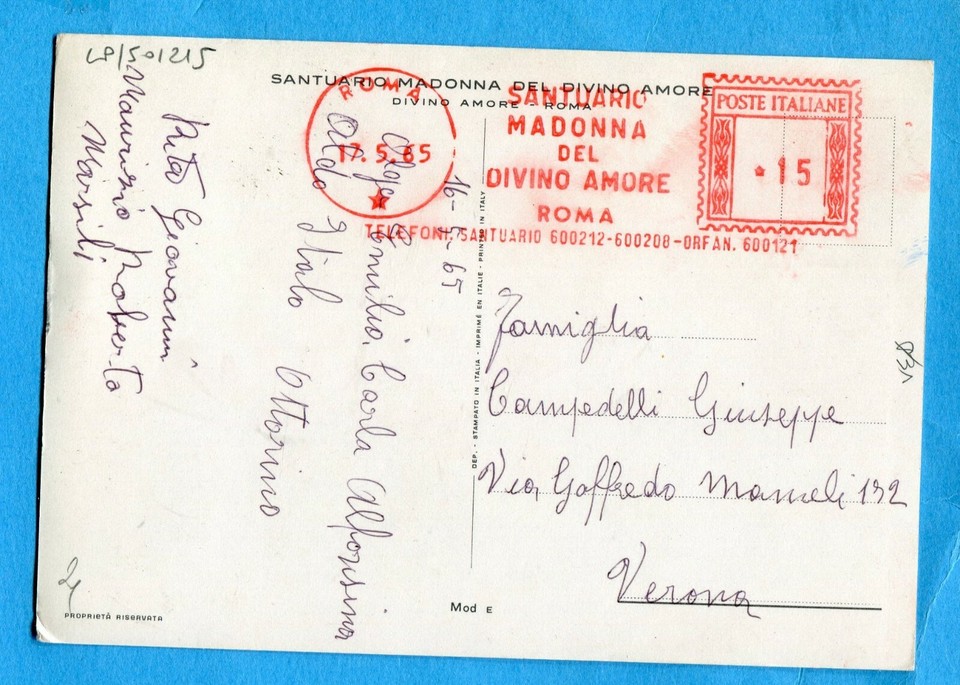 LP/501215
SANTUARIO MADONNA DEL DIVINO AMORE
DIVINO AMORE - ROMA
ROMA
17.5.65
SANTUARIO
MADONNA
DEL
DIVINO AMORE
ROMA
TELEFONI SANTUARIO 600212-600208-ORFAN. 600121
POSTE ITALIANE
15
16-5-65
Olga Emilio, Carla Alfonsina
Aldo Italo Ottorino
Rita Giovanni
Maurizio Roberto
Marsili
DEP. - STAMPATO IN ITALIA - IMPRIMÉ EN ITALIE - PRINTED IN ITALY
Famiglia
Campedelli Giuseppe
Via Goffredo Mameli 132
Verona
Mod E
PROPRIETÀ RISERVATA